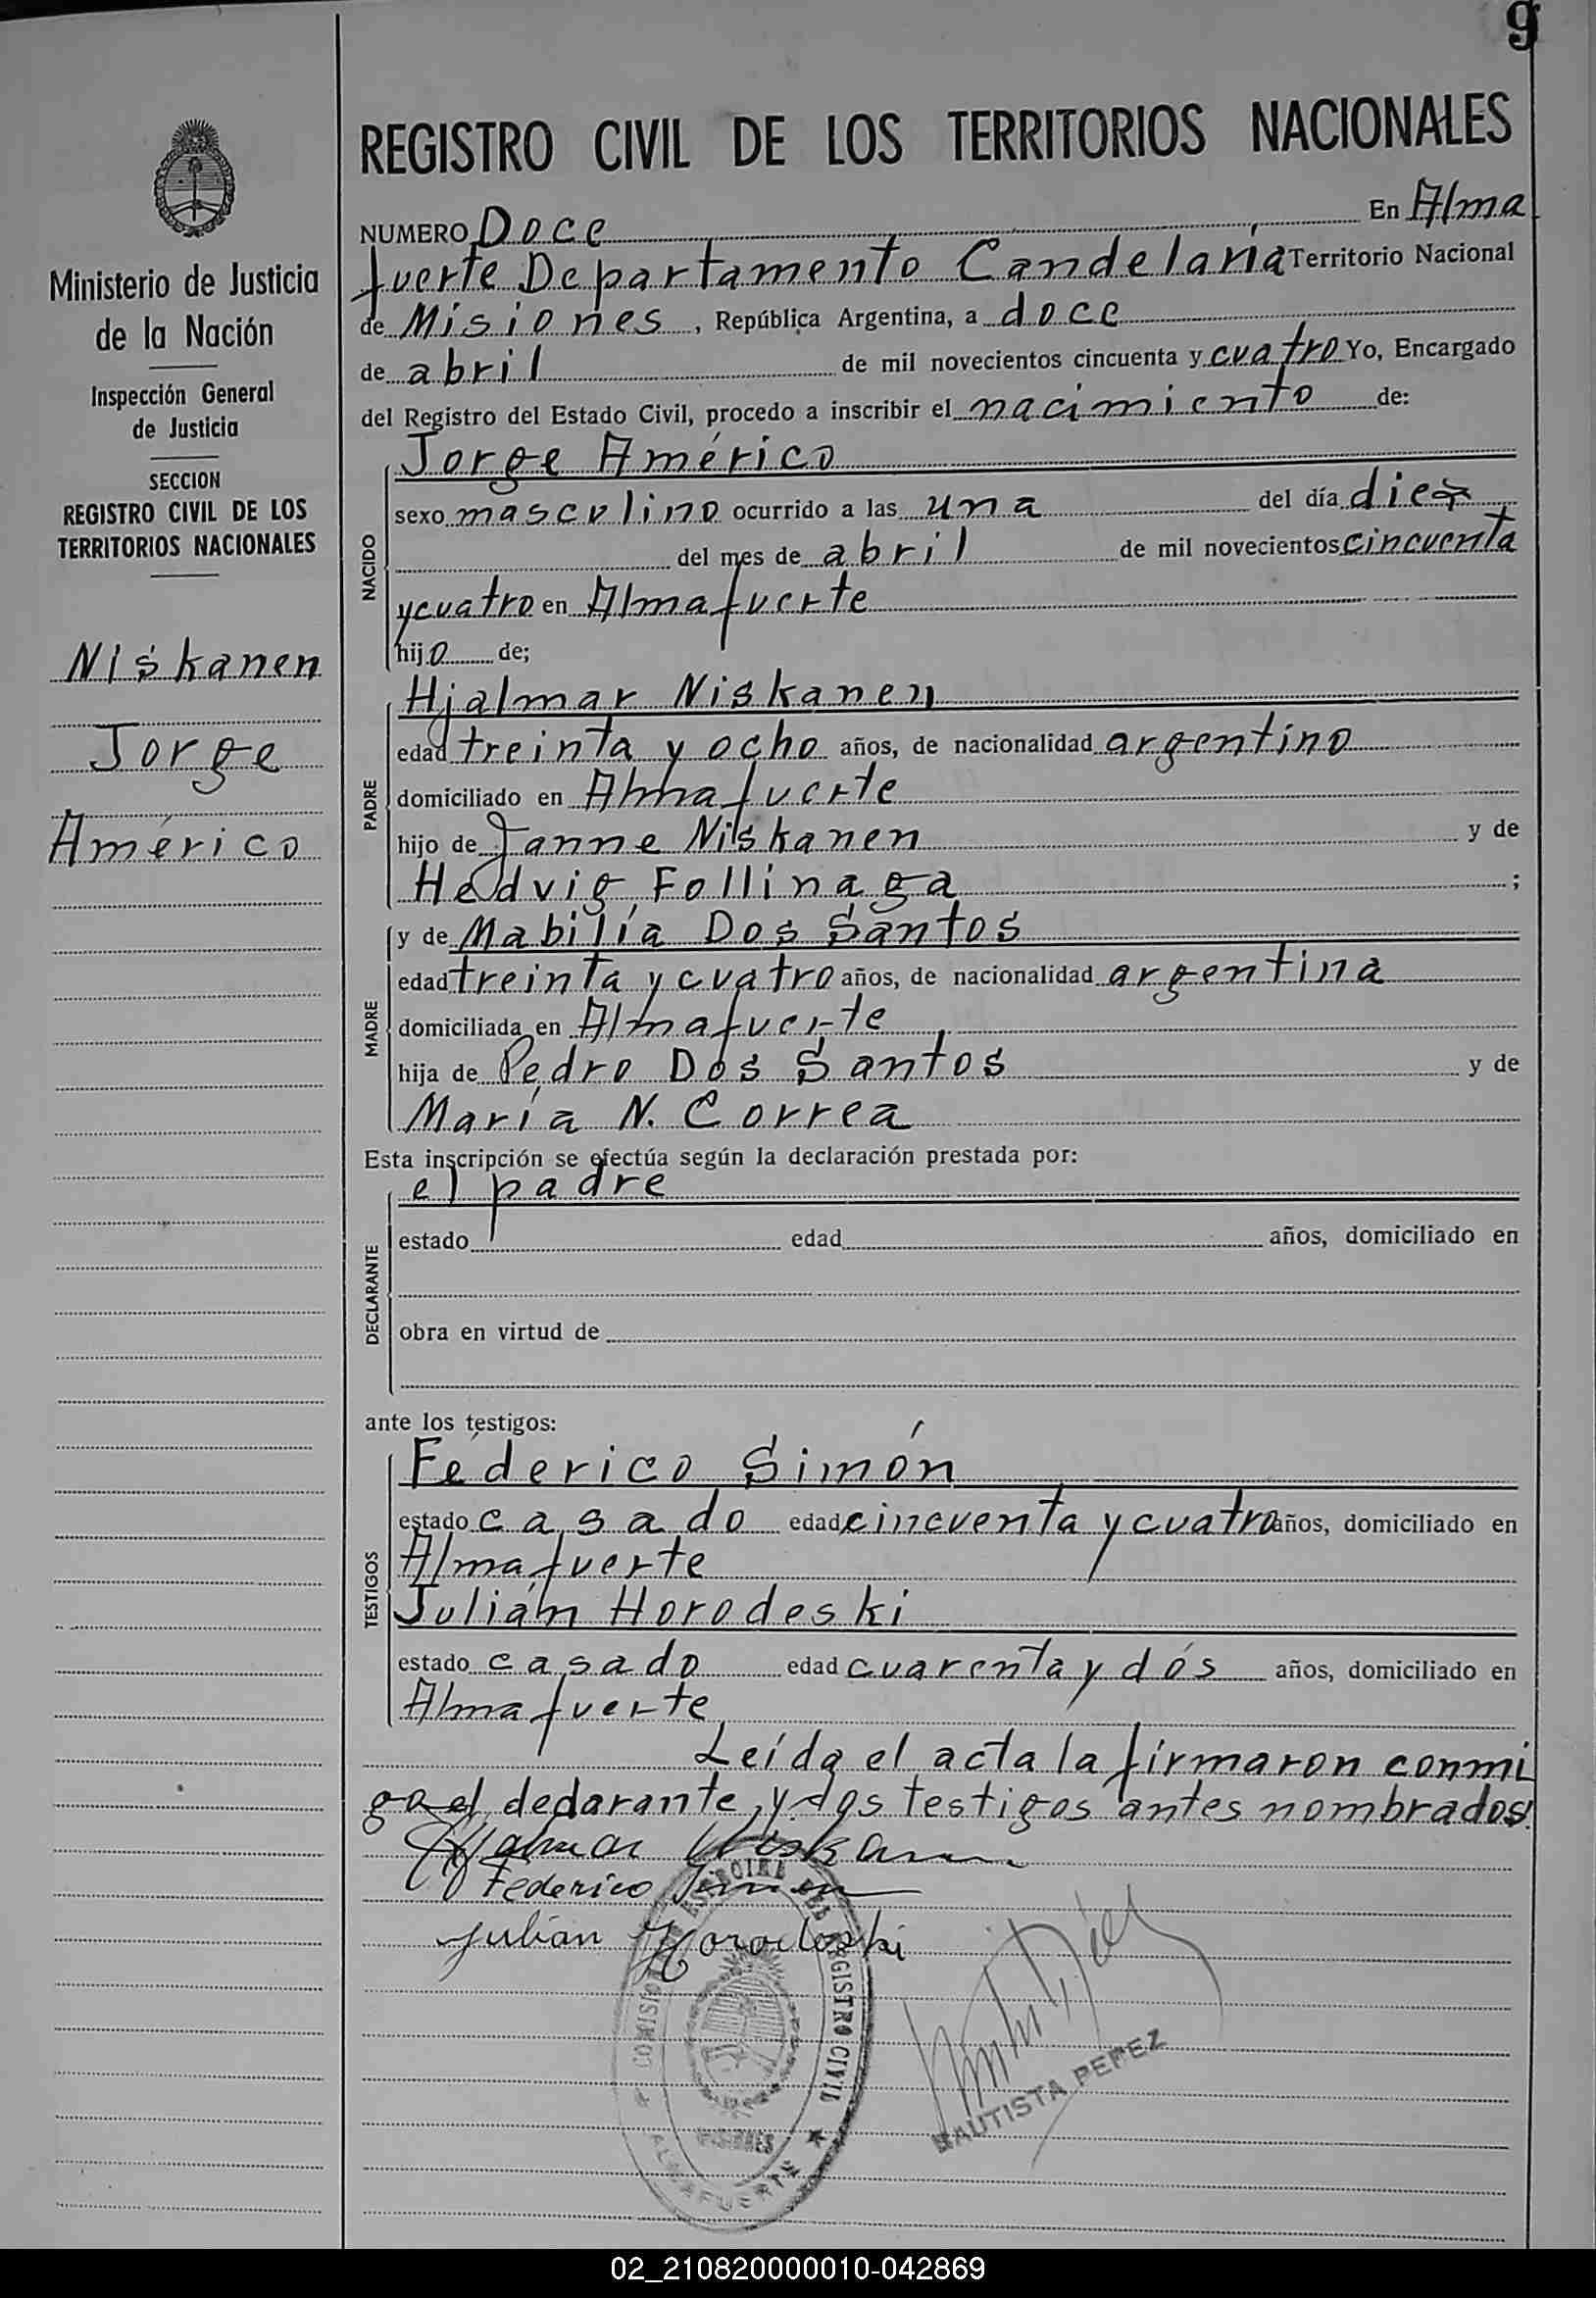 9
Ministerio de Justicia
de la Nación
Inspección General
de Justicia
SECCION
REGISTRO CIVIL DE LOS
TERRITORIOS NACIONALES
Niskanen
Jorge
Américo
REGISTRO CIVIL DE LOS TERRITORIOS NACIONALES
NUMERO Doce En Alma
fuerte Departamento Candelaria Territorio Nacional
de Misiones, República Argentina, a doce
de abril de mil novecientos cincuenta y cuatro Yo, Encargado
del Registro del Estado Civil, procedo a inscribir el nacimiento de:
NACIDO
Jorge Américo
sexo masculino ocurrido a las una del día diez
del mes de abril de mil novecientos cincuenta
y cuatro en Almafuerte
hijo de;
PADRE
Hjalmar Niskanen
edad treinta y ocho años, de nacionalidad argentino
domiciliado en Almafuerte
hijo de Janne Niskanen y de
Hedvig Follinaga ;
MADRE
y de Mabilia Dos Santos
edad treinta y cuatro años, de nacionalidad argentina
domiciliada en Almafuerte
hija de Pedro Dos Santos y de
María N. Correa
Esta inscripción se efectúa según la declaración prestada por:
DECLARANTE
el padre
estado edad años, domiciliado en
obra en virtud de
ante los testigos:
TESTIGOS
Federico Simón
estado casado edad cincuenta y cuatro años, domiciliado en
Almafuerte
Julián Horodeski
estado casado edad cuarenta y dós años, domiciliado en
Almafuerte
Leída el acta la firmaron conmi
go el declarante y dos testigos antes nombrados.
Hjalmar Niskanen
Federico Simon
Julián Horodeski
REGISTRO CIVIL
MISIONES
ALMAFUERTE
BAUTISTA PEREZ
02_210820000010-042869